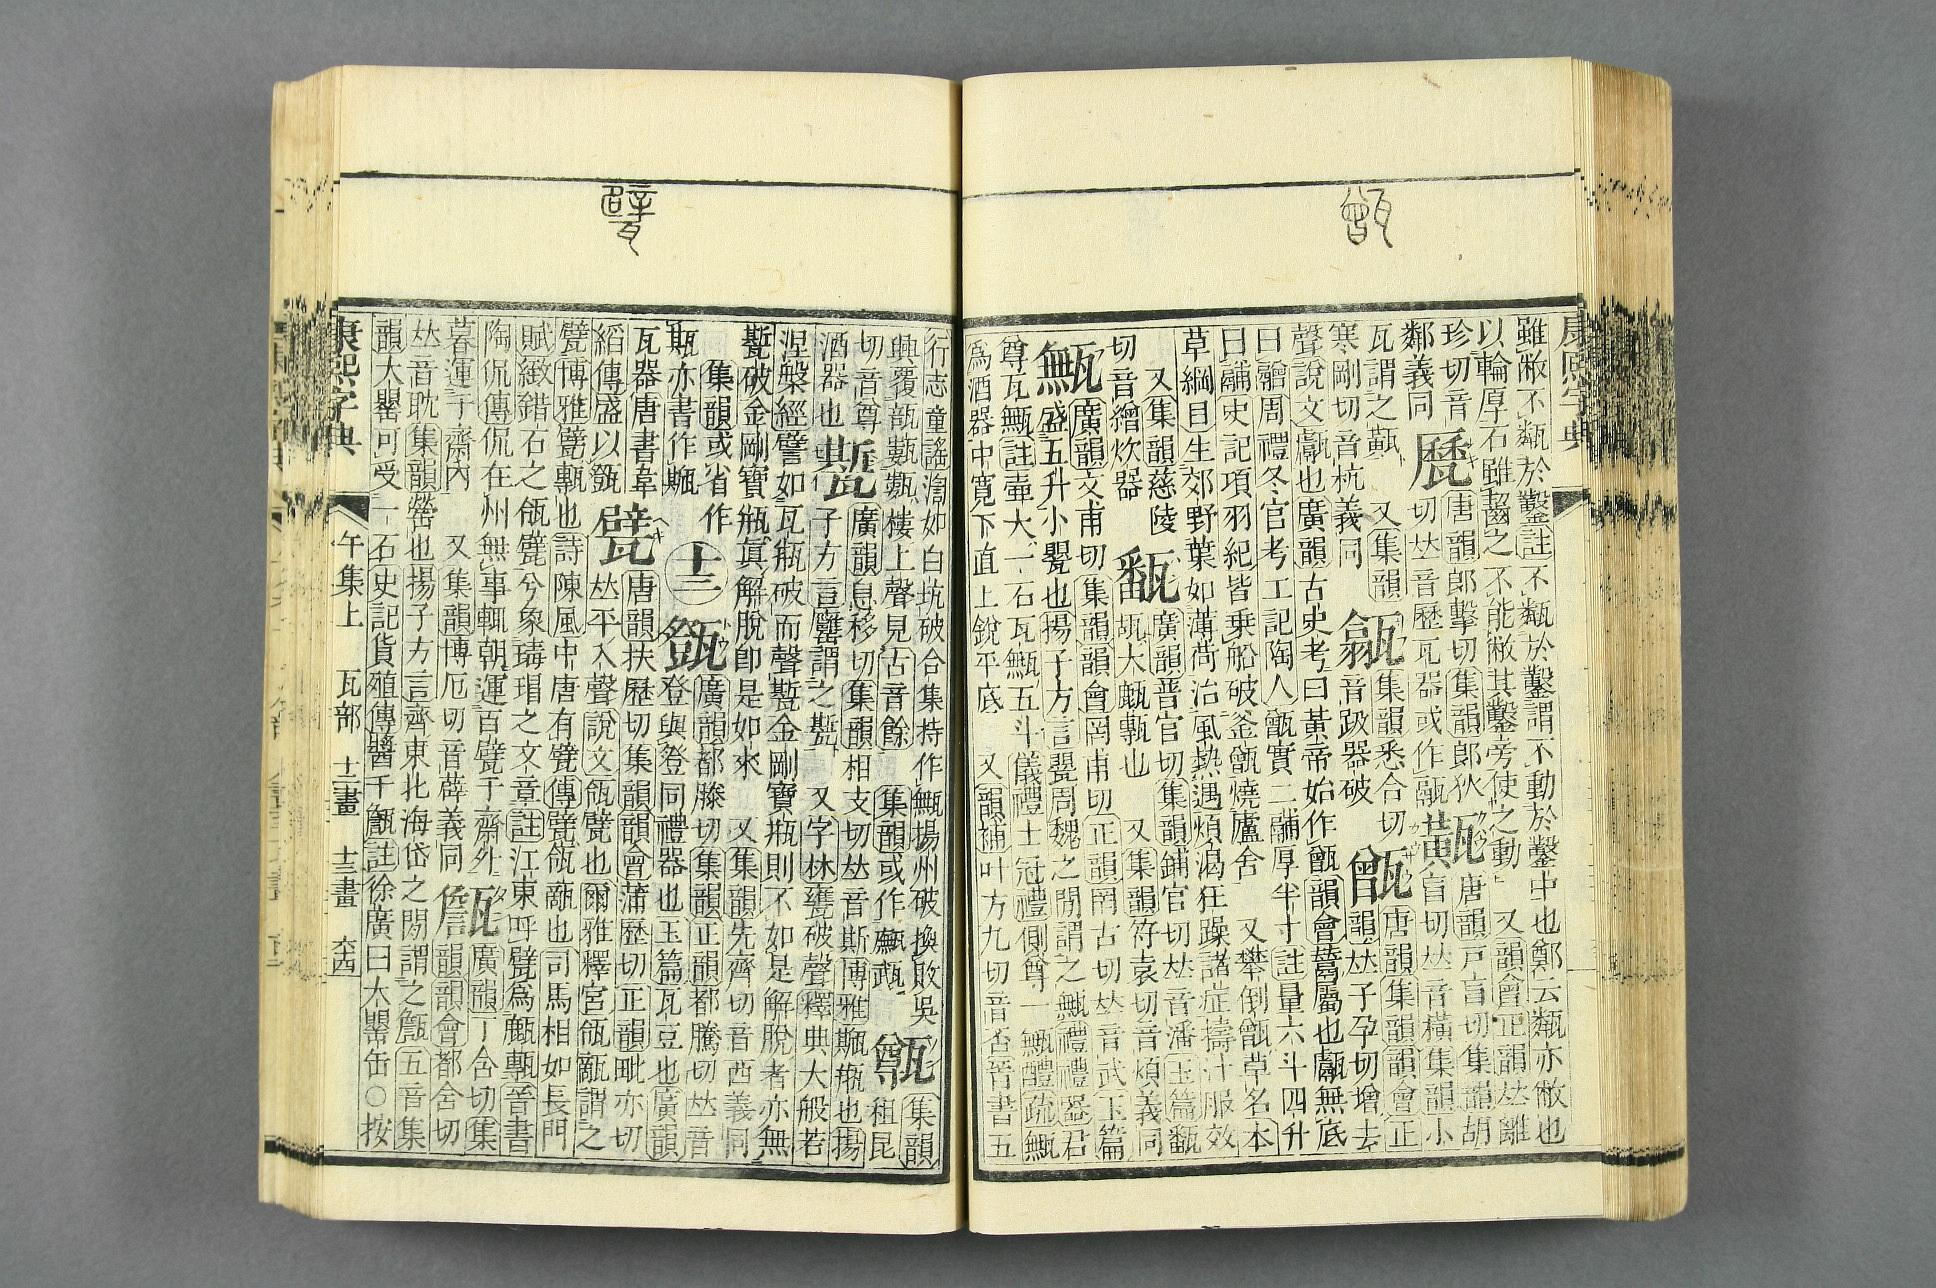 甑
雖敝不甐於鑿註不甐於鑿謂不動於鑿中也鄭云甐亦敝也
以輪厚石雖齧之不能敝其鑿旁使之動 又韻會正韻𠀤離
珍切音
鄰義同
甅
唐韻郞擊切集韻郞狄
切𠀤音歷瓦器或作㽁
㼹
唐韻戸盲切集韻胡
盲切𠀤音橫集韻小
瓦謂之㼹 又集韻
寒剛切音杭義同
㽂
集韻悉合切
音趿器破
甑
唐韻集韻韻會正
韻𠀤子孕切增去
聲說文甗也廣韻古史考曰黃帝始作甑韻會鬵屬也甗無底
曰䰝周禮冬官考工記陶人甑實二鬴厚半寸註量六斗四升
曰鬴史記項羽紀皆乗船破釜甑燒廬舍 又攀倒甑草名本
草綱目生郊野葉如薄荷治風熱遇煩渴狂躁諸症擣汁服效
又集韻慈陵
切音繒炊器
㽃
廣韻普官切集韻鋪官切𠀤音潘玉篇㽃
瓳大甎也 又集韻符袁切音煩義同
甒
廣韻文甫切集韻韻會罔甫切正韻罔古切𠀤音武玉篇
盛五升小甖也揚子方言甖周魏之閒謂之甒禮禮器君
尊瓦甒註壷大一石瓦甒五斗儀禮士冠禮側尊一甒醴疏甒
爲酒器中寛下直上銳平底 又韻補叶方九切音否晉書五
甓
行志童謠滃如白坑破合集持作甒揚州破換敗吳
興覆瓿甊甊樓上聲見古音餘 集韻或作㼢䍢
甑
集韻
租昆
切音尊
酒器也
㽄
廣韻息移切集韻相支切𠀤音斯博雅㽄㼜也揚
子方言罃謂之㽄 又字林甕破聲釋典大般若
涅槃經譬如瓦瓶破而聲㽄金剛寶瓶則不如是解脫者亦無
㽄破金剛寶瓶眞解脫卽是如來 又集韻先齊切音西義同
集韻或省作
㼽亦書作㽄
十二
㽅
廣韻都滕切集韻正韻都騰切𠀤音
登與登同禮器也玉篇瓦豆也廣韻
瓦器唐書韋
縚傳盛以㽅
甓
唐韻扶歷切集韻韻會蒲歷切正韻毗亦切
𠀤平入聲說文瓴甓也爾雅釋宮瓴甋謂之
甓博雅甓甎也詩陳風中唐有甓傳甓瓴甋也司馬相如長門
賦緻錯石之瓴甓兮象瑇瑁之文章註江東呼甓爲甋甎晉書
陶侃傳侃在州無事輒朝運百甓于齋外
暮運于齋內 又集韻博厄切音薜義同
甔
廣韻丁含切集
韻韻會都含切
𠀤音耽集韻罃也揚子方言齊東北海岱之閒謂之甔五音集
韻大罌可受一石史記貨殖傳醬千甔註徐廣曰大罌缶○按
康熙字典 午集上 瓦部 十二畫 十三畫 六十四
康熙字典